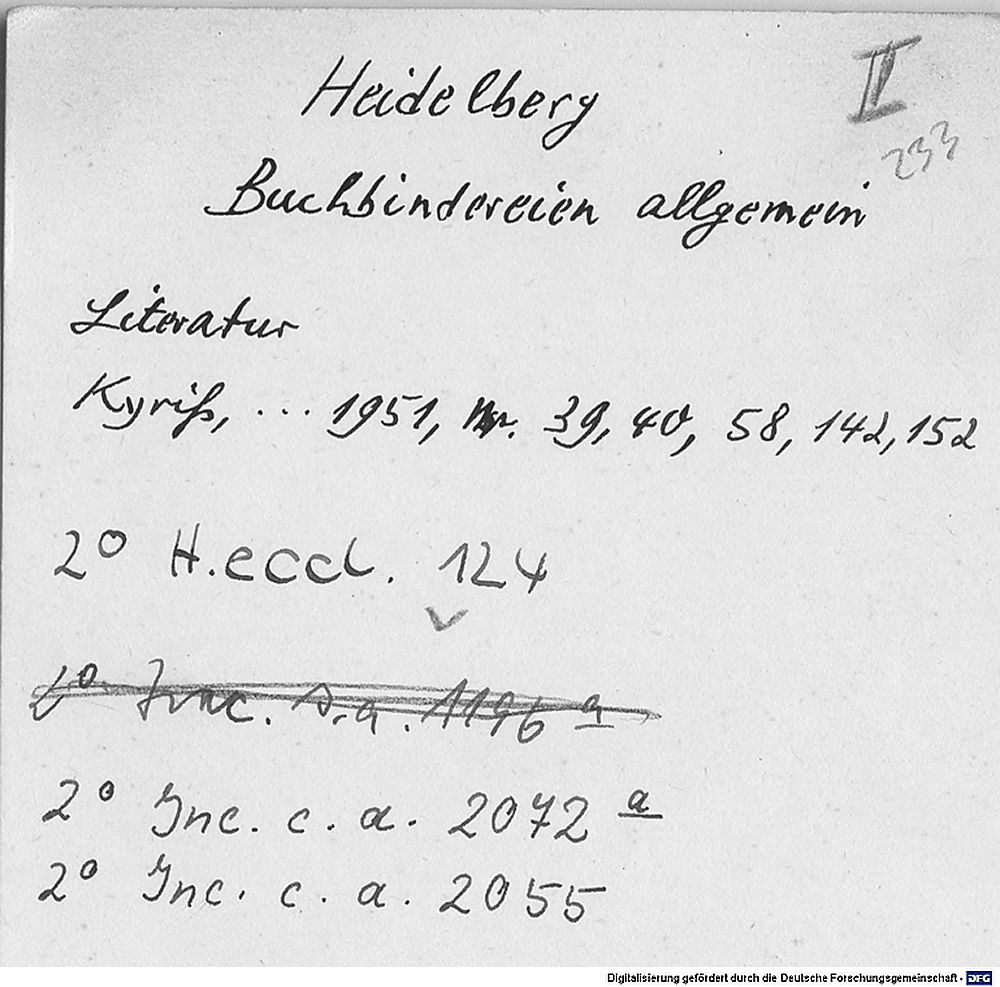 Heidelberg
II
233
Buchbindereien allgemein
Literatur
Kyriß, ... 1951, Nr. 39, 40, 58, 142, 152
2° H. eccl. 124
Inc. s. a. 1196 a
2° Inc. c. a. 2072 a
2° Inc. c. a. 2055
Digitalisierung gefördert durch die Deutsche Forschungsgemeinschaft - DFG